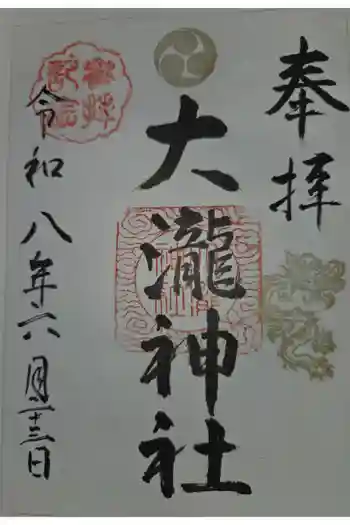 奉拝
大瀧神社
令和八年六月二十三日